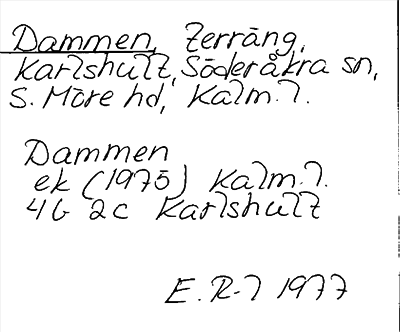 Dammen, Terräng,
Karlshult, Söderåkra sn,
S. Möre hd, Kalm. l.
Dammen
ek (1975) Kalm. l.
4G 2c Karlshult
E. R-l 1977